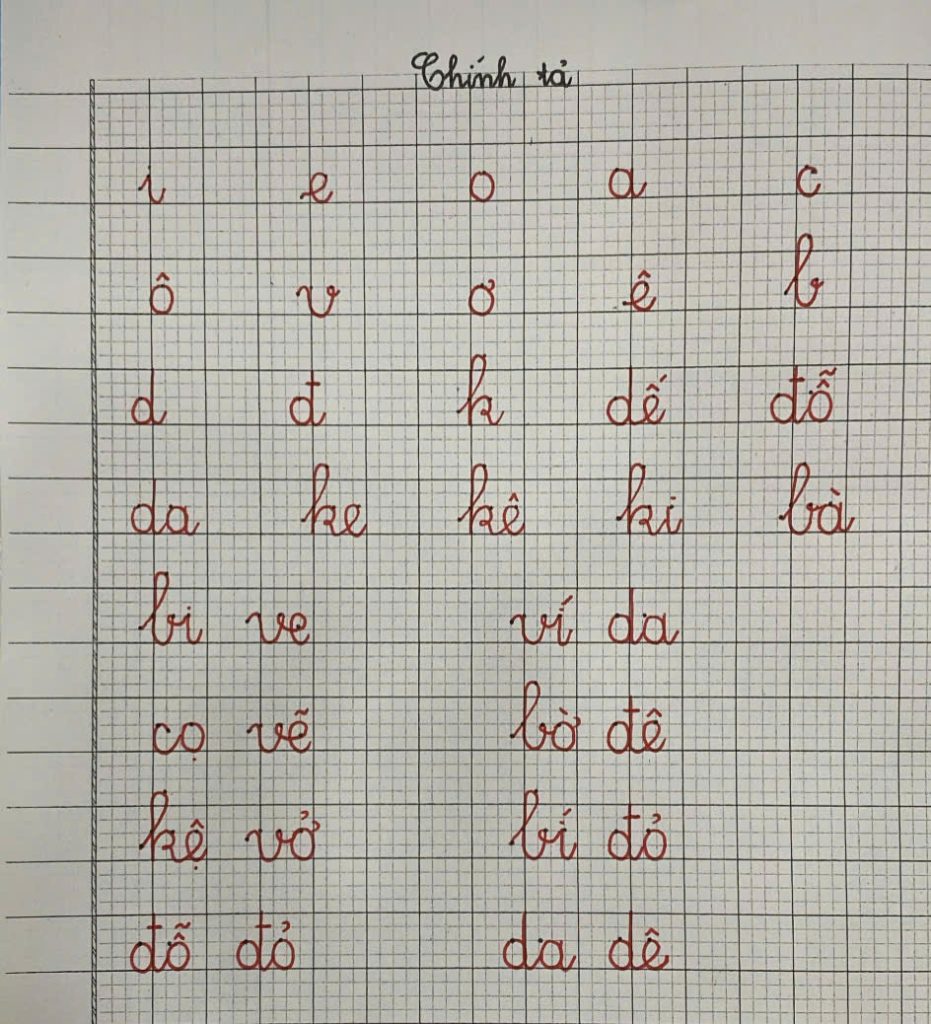 Chính tả
i e o a c
ô v ơ ê b
d đ k dế đỗ
da ke kê ki bà
bi ve ví da
cọ vẽ bờ đê
kệ vở bí đỏ
đỗ đỏ da dê